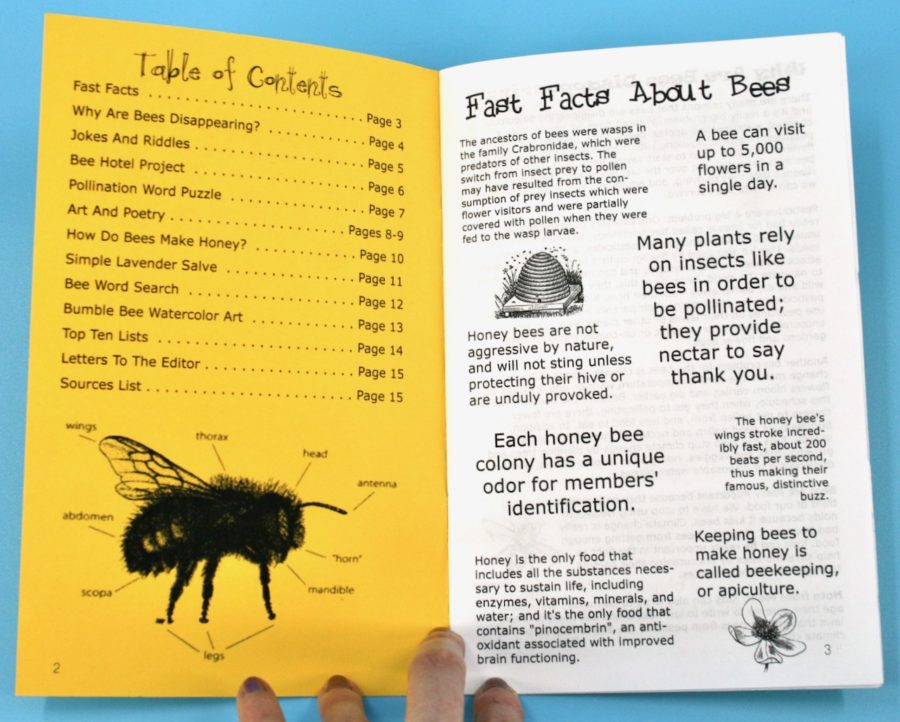 Table of Contents
Fast Facts . . . . . . . . . . . . . . . . . . . . . . . . . . . . Page 3
Why Are Bees Disappearing? . . . . . . . . . . . . . . Page 4
Jokes And Riddles . . . . . . . . . . . . . . . . . . . . . . Page 5
Bee Hotel Project . . . . . . . . . . . . . . . . . . . . . . . Page 6
Pollination Word Puzzle . . . . . . . . . . . . . . . . . . Page 7
Art And Poetry . . . . . . . . . . . . . . . . . . . . . . . Pages 8-9
How Do Bees Make Honey? . . . . . . . . . . . . . . . Page 10
Simple Lavender Salve . . . . . . . . . . . . . . . . . . Page 11
Bee Word Search . . . . . . . . . . . . . . . . . . . . . . Page 12
Bumble Bee Watercolor Art . . . . . . . . . . . . . . . Page 13
Top Ten Lists . . . . . . . . . . . . . . . . . . . . . . . . . Page 14
Letters To The Editor . . . . . . . . . . . . . . . . . . . . Page 15
Sources List . . . . . . . . . . . . . . . . . . . . . . . . . . Page 15
wings
thorax
head
antenna
abdomen
"horn"
scopa
mandible
legs
2
Fast Facts About Bees
The ancestors of bees were wasps in
the family Crabronidae, which were
predators of other insects. The
switch from insect prey to pollen
may have resulted from the con-
sumption of prey insects which were
flower visitors and were partially
covered with pollen when they were
fed to the wasp larvae.
A bee can visit
up to 5,000
flowers in a
single day.
Many plants rely
on insects like
bees in order to
be pollinated;
they provide
nectar to say
thank you.
Honey bees are not
aggressive by nature,
and will not sting unless
protecting their hive or
are unduly provoked.
Each honey bee
colony has a unique
odor for members'
identification.
The honey bee's
wings stroke incred-
ibly fast, about 200
beats per second,
thus making their
famous, distinctive
buzz.
Honey is the only food that
includes all the substances neces-
sary to sustain life, including
enzymes, vitamins, minerals, and
water; and it's the only food that
contains "pinocembrin", an anti-
oxidant associated with improved
brain functioning.
Keeping bees to
make honey is
called beekeeping,
or apiculture.
3